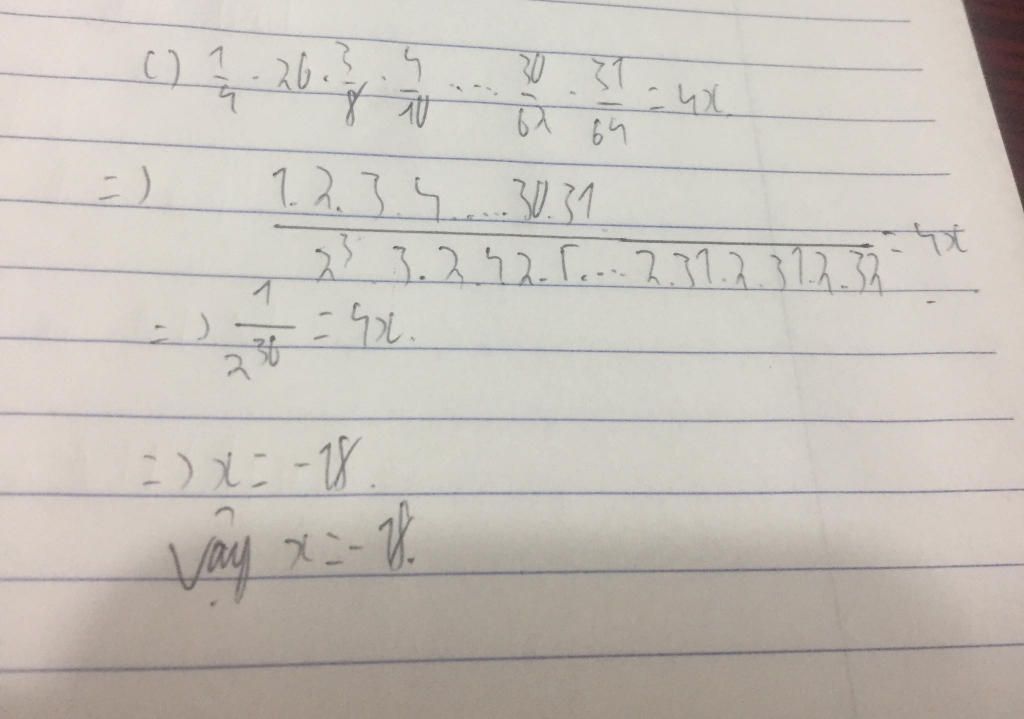 c) 1/4 . 26 . 3/8 . 4/10 .... 30/62 . 31/64 = 4x
=) 1.2.3.4.....30.31 / 2³ 3.2.42.5....2.31.2.31.2.32 = 4x
=) 1/2³⁶ = 4x.
=) x = -18.
Vậy x = -18.